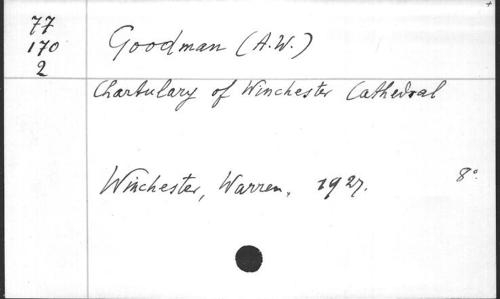 77
170
2
Goodman (A.W.)
Chartulary of Winchester Cathedral
Winchester, Warren, 1927.
8°